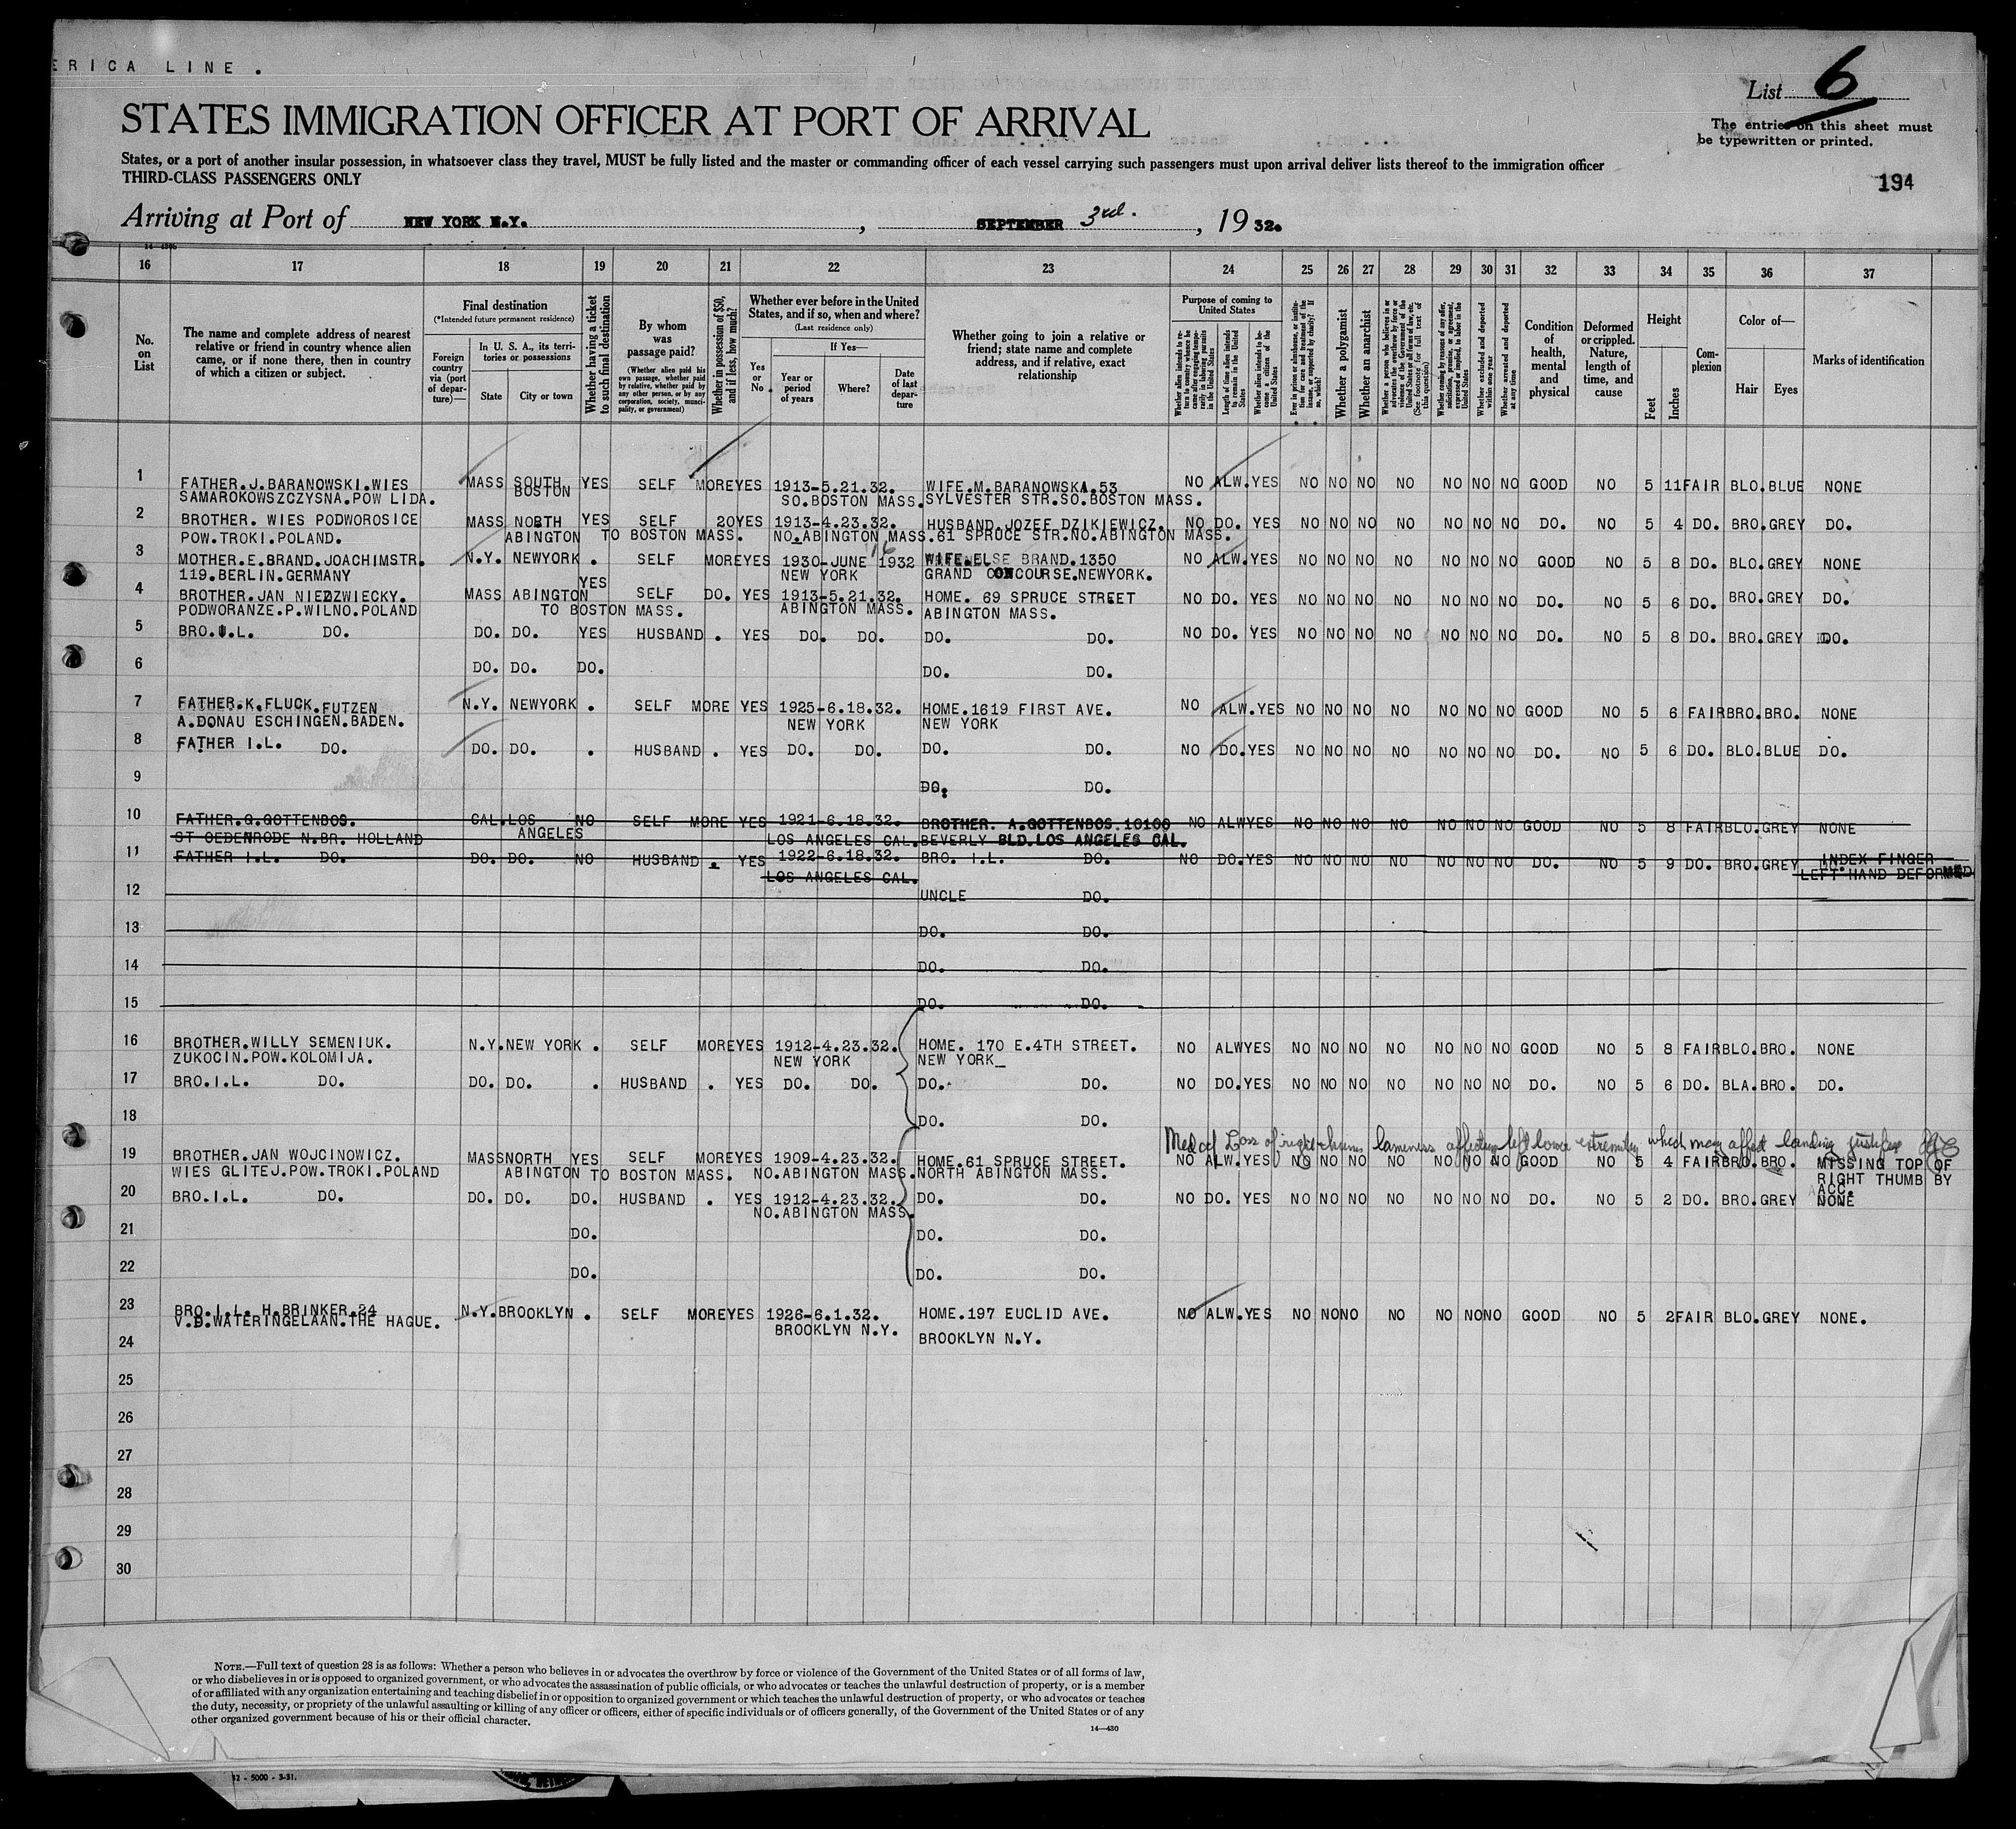 ERICA LINE.
List 6
STATES IMMIGRATION OFFICER AT PORT OF ARRIVAL
The entries on this sheet must
be typewritten or printed.
States, or a port of another insular possession, in whatsoever class they travel, MUST be fully listed and the master or commanding officer of each vessel carrying such passengers must upon arrival deliver lists thereof to the immigration officer
THIRD-CLASS PASSENGERS ONLY
194
Arriving at Port of NEW YORK N.Y. , SEPTEMBER 3rd. , 19 32.
16 17 18 19 20 21 22 23 24 25 26 27 28 29 30 31 32 33 34 35 36 37
No. on List
The name and complete address of nearest relative or friend in country whence alien came, or if none there, then in country of which a citizen or subject.
Final destination
(*Intended future permanent residence)
Foreign country via (port of departure)—
In U. S. A., its territories or possessions
State
City or town
Whether having a ticket to such final destination
By whom was passage paid?
(Whether alien paid his own passage, whether paid by relative, whether paid by any other person, or by any corporation, society, municipality, or government)
Whether in possession of $50, and if less, how much?
Whether ever before in the United States, and if so, when and where?
(Last residence only)
Yes or No
If Yes—
Year or period of years
Where?
Date of last departure
Whether going to join a relative or friend; state name and complete address, and if relative, exact relationship
Purpose of coming to United States
Whether alien intends to return to country whence he came after engaging temporarily in laboring pursuits in the United States
Length of time alien intends to remain in the United States
Whether alien intends to become a citizen of the United States
Ever in prison or almshouse, or institution for care and treatment of the insane, or supported by charity? If so, which?
Whether a polygamist
Whether an anarchist
Whether a person who believes in or advocates the overthrow by force or violence of the Government of the United States or all forms of law, etc. (See footnote for full text of this question)
Whether coming by reasons of any offer, solicitation, promise, or agreement, expressed or implied, to labor in the United States
Whether excluded and deported within one year
Whether arrested and deported at any time
Condition of health, mental and physical
Deformed or crippled. Nature, length of time, and cause
Height
Feet
Inches
Complexion
Color of—
Hair
Eyes
Marks of identification
1 FATHER.J.BARANOWSKI.WIES MASS SOUTH BOSTON YES SELF MORE YES 1913-5.21.32. WIFE.M.BARANOWSKA.53 NO ALW. YES NO NO NO NO NO NO NO GOOD NO 5 11 FAIR BLO. BLUE NONE
SAMAROKOWSZCZYSNA.POW LIDA. SO.BOSTON MASS. SYLVESTER STR.SO.BOSTON MASS.
2 BROTHER. WIES PODWOROSICE MASS NORTH YES SELF 20 YES 1913-4.23.32. HUSBAND.JOZEF DZIKIEWICZ. NO DO. YES NO NO NO NO NO NO NO DO. NO 5 4 DO. BRO. GREY DO.
POW.TROKI.POLAND. ABINGTON TO BOSTON MASS. NO.ABINGTON MASS. 61 SPRUCE STR.NO.ABINGTON MASS.
3 MOTHER.E.BRAND.JOACHIMSTR. N.Y. NEWYORK . SELF MORE YES 1930-JUNE 16 1932 WIFE.ELSE BRAND.1350 NO ALW. YES NO NO NO NO NO NO NO GOOD NO 5 8 DO. BLO. GREY NONE
119.BERLIN.GERMANY NEW YORK GRAND CONCOURSE.NEWYORK.
4 BROTHER.JAN NIEDZWIECKY. MASS ABINGTON YES SELF DO. YES 1913-5.21.32. HOME. 69 SPRUCE STREET NO DO. YES NO NO NO NO NO NO NO DO. NO 5 6 DO. BRO. GREY DO.
PODWORANZE.P.WILNO.POLAND TO BOSTON MASS. ABINGTON MASS. ABINGTON MASS.
5 BRO.I.L. DO. DO. DO. YES HUSBAND . YES DO. DO. DO. DO. NO DO. YES NO NO NO NO NO NO NO DO. NO 5 8 DO. BRO. GREY DO.
6 DO. DO. DO. DO. DO.
7 FATHER.K.FLUCK.FUTZEN N.Y. NEWYORK . SELF MORE YES 1925-6.18.32. HOME.1619 FIRST AVE. NO ALW. YES NO NO NO NO NO NO NO GOOD NO 5 6 FAIR BRO. BRO. NONE
A.DONAU ESCHINGEN.BADEN. NEW YORK NEW YORK
8 FATHER I.L. DO. DO. DO. . HUSBAND . YES DO. DO. DO. DO. NO DO. YES NO NO NO NO NO NO NO DO. NO 5 6 DO. BLO. BLUE DO.
9 DO. DO.
10 FATHER.G.GOTTENBOS. CAL. LOS ANGELES NO SELF MORE YES 1921-6.18.32. BROTHER. A.GOTTENBOS.10100 NO ALW YES NO NO NO NO NO NO NO GOOD NO 5 8 FAIR BLO. GREY NONE
ST OEDENRODE N.BR. HOLLAND LOS ANGELES CAL. BEVERLY BLD.LOS ANGELES CAL.
11 FATHER I.L. DO. DO. DO. NO HUSBAND . YES 1922-6.18.32. BRO. I.L. DO. NO DO. YES NO NO NO NO NO NO NO DO. NO 5 9 DO. BRO. GREY INDEX FINGER
LOS ANGELES CAL. LEFT HAND DEFORMED
12 UNCLE DO.
13 DO. DO.
14 DO. DO.
15 DO. DO.
16 BROTHER.WILLY SEMENIUK. N.Y. NEW YORK . SELF MORE YES 1912-4.23.32. HOME. 170 E.4TH STREET. NO ALW YES NO NO NO NO NO NO NO GOOD NO 5 8 FAIR BLO. BRO. NONE
ZUKOCIN.POW.KOLOMIJA. NEW YORK NEW YORK
17 BRO.I.L. DO. DO. DO. . HUSBAND . YES DO. DO. DO. DO. NO DO. YES NO NO NO NO NO NO NO DO. NO 5 6 DO. BLA. BRO. DO.
18 DO. DO.
Med cf Loss of right thumb lameness affecting left lower extremity which may affect landing
19 BROTHER.JAN WOJCINOWICZ. MASS NORTH YES SELF MORE YES 1909-4.23.32. HOME.61 SPRUCE STREET. NO ALW. YES NO NO NO NO NO NO NO GOOD NO 5 4 FAIR BRO. BRO. MISSING TOP OF
WIES GLITEJ.POW.TROKI.POLAND ABINGTON TO BOSTON MASS. NO.ABINGTON MASS. NORTH ABINGTON MASS. RIGHT THUMB BY
ACC.
20 BRO.I.L. DO. DO. DO. DO. HUSBAND . YES 1912-4.23.32. DO. DO. NO DO. YES NO NO NO NO NO NO NO DO. NO 5 2 DO. BRO. GREY NONE
NO.ABINGTON MASS.
21 DO. DO. DO.
22 DO. DO. DO.
23 BRO.I.L. H.BRINKER.24 N.Y. BROOKLYN . SELF MORE YES 1926-6.1.32. HOME.197 EUCLID AVE. NO ALW. YES NO NO NO NO NO NO NO GOOD NO 5 2 FAIR BLO. GREY NONE.
V.D.WATERINGELAAN.THE HAGUE. BROOKLYN N.Y. BROOKLYN N.Y.
24
25
26
27
28
29
30
NOTE.—Full text of question 28 is as follows: Whether a person who believes in or advocates the overthrow by force or violence of the Government of the United States or of all forms of law,
or who disbelieves in or is opposed to organized government, or who advocates the assassination of public officials, or who advocates or teaches the unlawful destruction of property, or is a member
of or affiliated with any organization entertaining and teaching disbelief in or opposition to organized government or which teaches the unlawful destruction of property, or who advocates or teaches
the duty, necessity, or propriety of the unlawful assaulting or killing of any officer or officers, either of specific individuals or of officers generally, of the Government of the United States or of any
other organized government because of his or their official character.
14—430
12 - 5000 - 3-31.